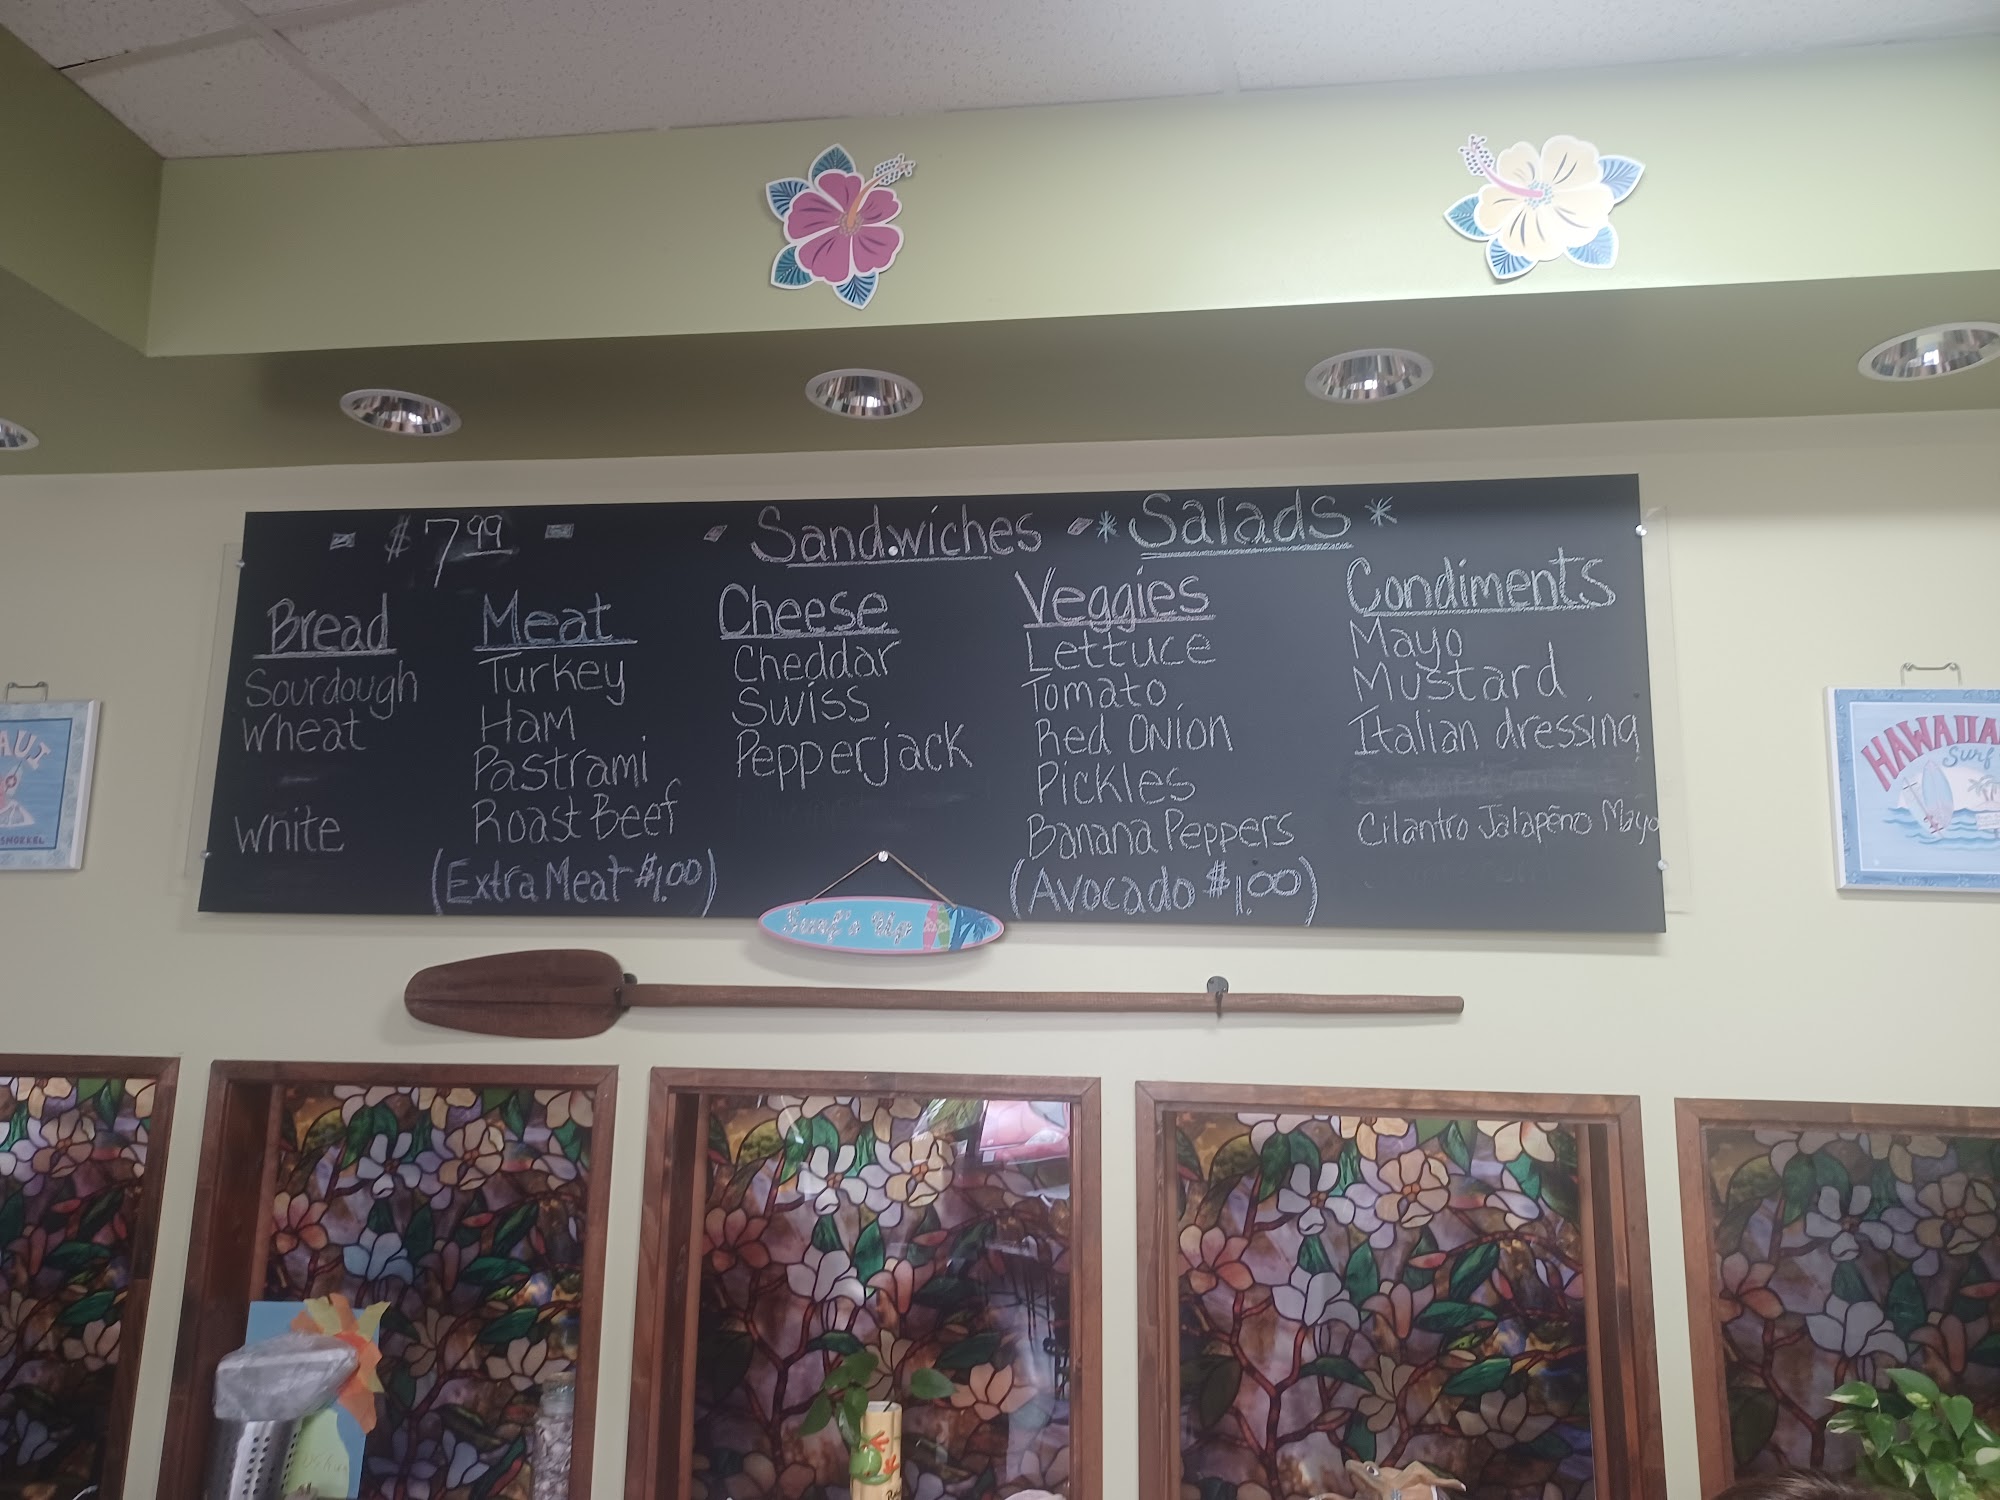 $7.99
Sandwiches
Salads
Bread
Sourdough
Wheat
White
Meat
Turkey
Ham
Pastrami
Roast Beef
(Extra Meat $1.00)
Cheese
Cheddar
Swiss
Pepperjack
Veggies
Lettuce
Tomato
Red Onion
Pickles
Banana Peppers
(Avocado $1.00)
Condiments
Mayo
Mustard
Italian dressing
Cilantro Jalapeño Mayo
Surf's Up
SNORKEL
HAWAIIA
Surf